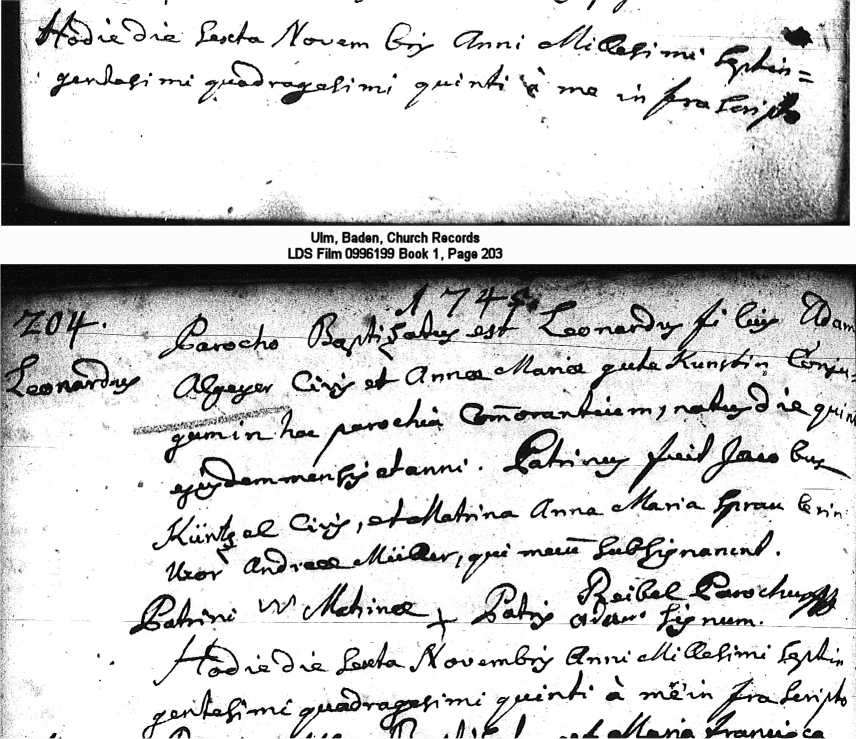 Hodie die Sexta Novembris Anni Millesimi Septin=
gentesimi quadragesimi quinti à me infra Scripto
Ulm, Baden, Church Records
LDS Film 0996199 Book 1, Page 203
1745.
204.
Parocho Baptizatus est Leonardus filius Adam
Leonardus
Algeyer Civis et Annae Mariae gute Kunstin Conju=
gum in hac parochiâ Com̄orantium, natus die quin
ejusdem mensis et anni. Patrinus fuit Jacobus
Küntzel Civis, et Matrina Anna Maria Sprauerin
Uxor Andreae Müller, qui mecū Subsignarunt.
Reibel Parochus
Patrini W Matrinae + Patris adam Signum.
Hodie die Sexta Novembris Anni Millesimi Septin
gentesimi quadragesimi quinti à me infra Scripto
et Maria Francisca